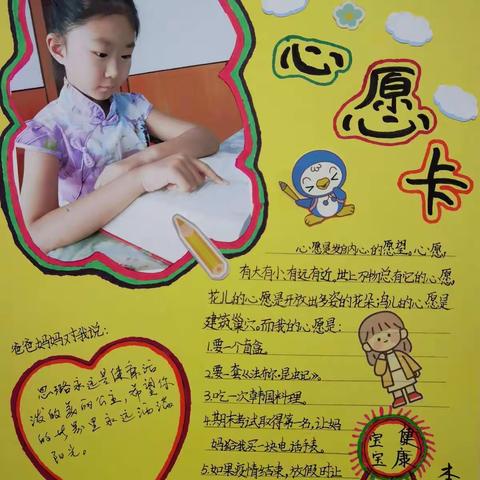 心愿卡
心愿是发自内心的愿望。心愿,
有大有小,有远有近。世上万物总有它的心愿,
花儿的心愿是开放出多姿的花朵;鸟儿的心愿是
建筑巢穴。而我的心愿是:
1.要一个盲盒。
2.要一套《法布尔·昆虫记》。
3.吃一次韩国料理。
4.期末考试取得第一名,让妈
妈给我买一块电话手表。
5.如果疫情结束,放假时让
爸爸妈妈对我说:
思璐永远是健康活
泼的美丽公主,希望你
的世界里永远洒满
阳光。
健康
宝宝